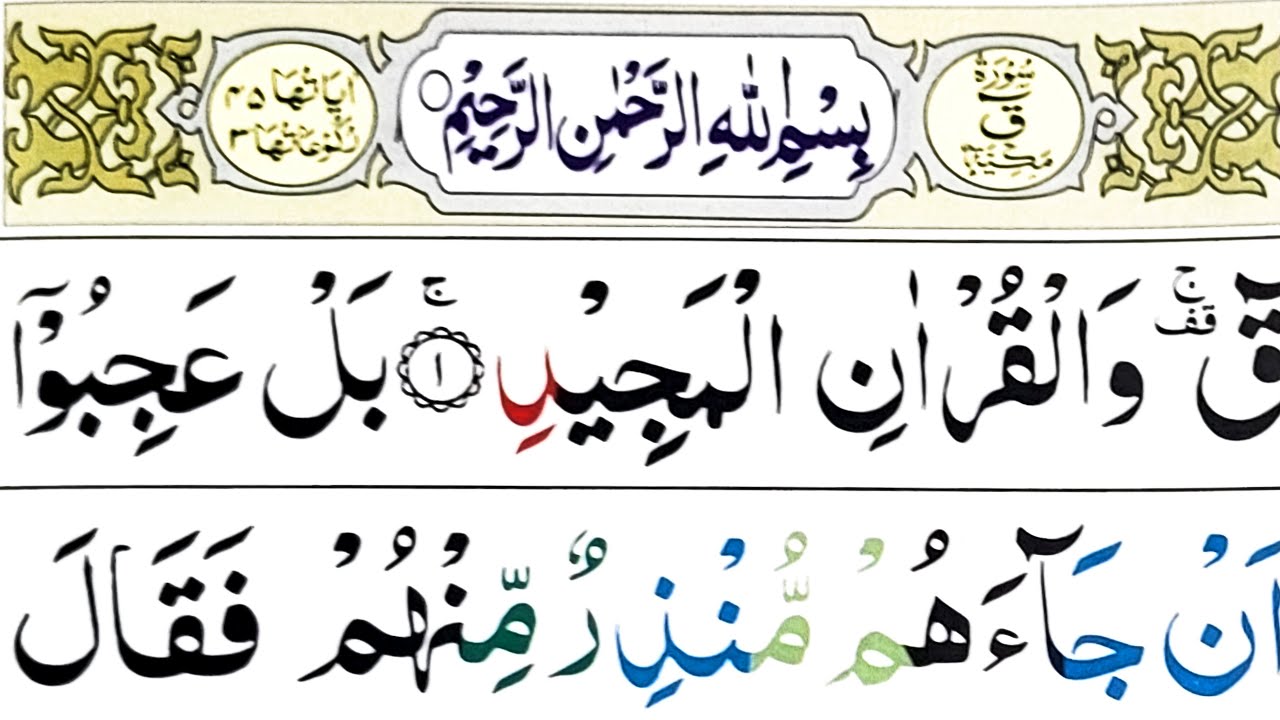 سُوْرَةُ قٓ مَكِّيَّةٌ
بِسْمِ اللّٰهِ الرَّحْمٰنِ الرَّحِيْمِ
اٰيَاتُهَا ۴۵
رُكُوْعَاتُهَا ۳
قٓ ۚ قف وَالْقُرْاٰنِ الْمَجِيْدِ ۚ ۱ بَلْ عَجِبُوْۤا
اَنْ جَآءَهُمْ مُّنْذِرٌ مِّنْهُمْ فَقَالَ